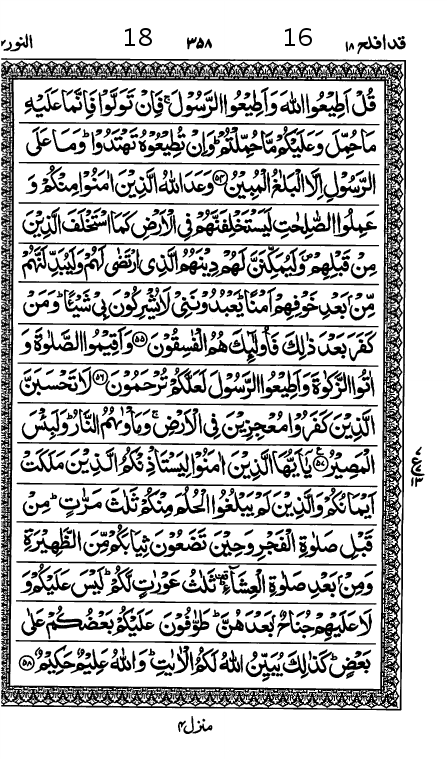 قد افلح ۱۸ 16 ۳۵۸ 18 النور
قُلْ اَطِيْعُوا اللّٰهَ وَاَطِيْعُوا الرَّسُوْلَ ۚ فَاِنْ تَوَلَّوْا فَاِنَّمَا عَلَيْهِ
مَا حُمِّلَ وَعَلَيْكُمْ مَّا حُمِّلْتُمْ ؕ وَاِنْ تُطِيْعُوْهُ تَهْتَدُوْا ؕ وَمَا عَلَى
الرَّسُوْلِ اِلَّا الْبَلٰغُ الْمُبِيْنُ ﴿۵۴﴾ وَعَدَ اللّٰهُ الَّذِيْنَ اٰمَنُوْا مِنْكُمْ وَ
عَمِلُوا الصّٰلِحٰتِ لَيَسْتَخْلِفَنَّهُمْ فِى الْاَرْضِ كَمَا اسْتَخْلَفَ الَّذِيْنَ
مِنْ قَبْلِهِمْ ۪ وَلَيُمَكِّنَنَّ لَهُمْ دِيْنَهُمُ الَّذِى ارْتَضٰى لَهُمْ وَلَيُبَدِّلَنَّهُمْ
مِّنْۢ بَعْدِ خَوْفِهِمْ اَمْنًا ؕ يَعْبُدُوْنَنِىْ لَا يُشْرِكُوْنَ بِىْ شَيْـًٔا ؕ وَمَنْ
كَفَرَ بَعْدَ ذٰلِكَ فَاُولٰٓئِكَ هُمُ الْفٰسِقُوْنَ ﴿۵۵﴾ وَاَقِيْمُوا الصَّلٰوةَ وَ
اٰتُوا الزَّكٰوةَ وَاَطِيْعُوا الرَّسُوْلَ لَعَلَّكُمْ تُرْحَمُوْنَ ﴿۵۶﴾ لَا تَحْسَبَنَّ
الَّذِيْنَ كَفَرُوْا مُعْجِزِيْنَ فِى الْاَرْضِ ۚ وَمَاْوٰىهُمُ النَّارُ ؕ وَلَبِئْسَ
الْمَصِيْرُ ﴿۵۷﴾ يٰۤاَيُّهَا الَّذِيْنَ اٰمَنُوْا لِيَسْتَاْذِنْكُمُ الَّذِيْنَ مَلَكَتْ
اَيْمَانُكُمْ وَالَّذِيْنَ لَمْ يَبْلُغُوا الْحُلُمَ مِنْكُمْ ثَلٰثَ مَرّٰتٍ ؕ مِنْ
قَبْلِ صَلٰوةِ الْفَجْرِ وَحِيْنَ تَضَعُوْنَ ثِيَابَكُمْ مِّنَ الظَّهِيْرَةِ
وَمِنْۢ بَعْدِ صَلٰوةِ الْعِشَآءِ ؕ ثَلٰثُ عَوْرٰتٍ لَّكُمْ ؕ لَيْسَ عَلَيْكُمْ وَ
لَا عَلَيْهِمْ جُنَاحٌۢ بَعْدَهُنَّ ؕ طَوّٰفُوْنَ عَلَيْكُمْ بَعْضُكُمْ عَلٰى
بَعْضٍ ؕ كَذٰلِكَ يُبَيِّنُ اللّٰهُ لَكُمُ الْاٰيٰتِ ؕ وَاللّٰهُ عَلِيْمٌ حَكِيْمٌ ﴿۵۸﴾
منزل ۴